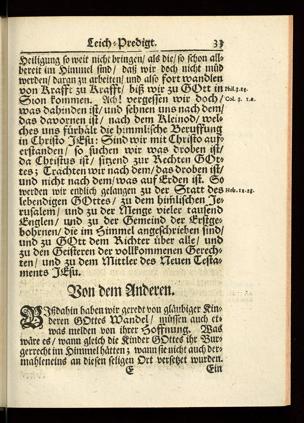 Leich-Predigt. 33
Heiligung so weit nicht bringen/ als die/ so schon all-
bereit im Himmel sind/ daß wir doch nicht müd
werden/ daran zu arbeiten/ und also fort wandlen
von Krafft zu Krafft/ biß wir zu GOtt in
Sion kommen. Ach! vergessen wir doch/
was dahinden ist/ und sehnen uns nach dem/
das davornen ist/ nach dem Kleinod/ wel-
ches uns fürhält die himmlische Beruffung
in Christo JEsu: Sind wir mit Christo auf-
erstanden/ so suchen wir was droben ist/
da Christus ist/ sitzend zur Rechten GOt-
tes; Trachten wir nach dem/ das droben ist/
und nicht nach dem/ was auf Erden ist. So
werden wir endlich gelangen zu der Statt des
lebendigen GOttes/ zu dem himlischen Je-
rusalem/ und zu der Menge vieler tausend
Englen/ und zu der Gemeind der Erstge-
bohrnen/ die im Himmel angeschrieben sind/
und zu GOtt dem Richter über alle/ und
zu den Geisteren der vollkommenen Gerech-
ten/ und zu dem Mittler des Neuen Testa-
ments JEsu.
Phil. 3. 13.
Col. 3. 1. 2.
Heb. 12. 22.
Von dem Anderen.
Bißdahin haben wir geredt von gläubiger Kin-
deren GOttes Wandel/ müssen auch et-
was melden von ihrer Hoffnung. Was
wäre es/ wann gleich die Kinder GOttes ihr Bur-
gerrecht im Himmel hätten; wann sie nicht auch der-
mahleneins an diesen seligen Ort versetzet wurden.
E Ein